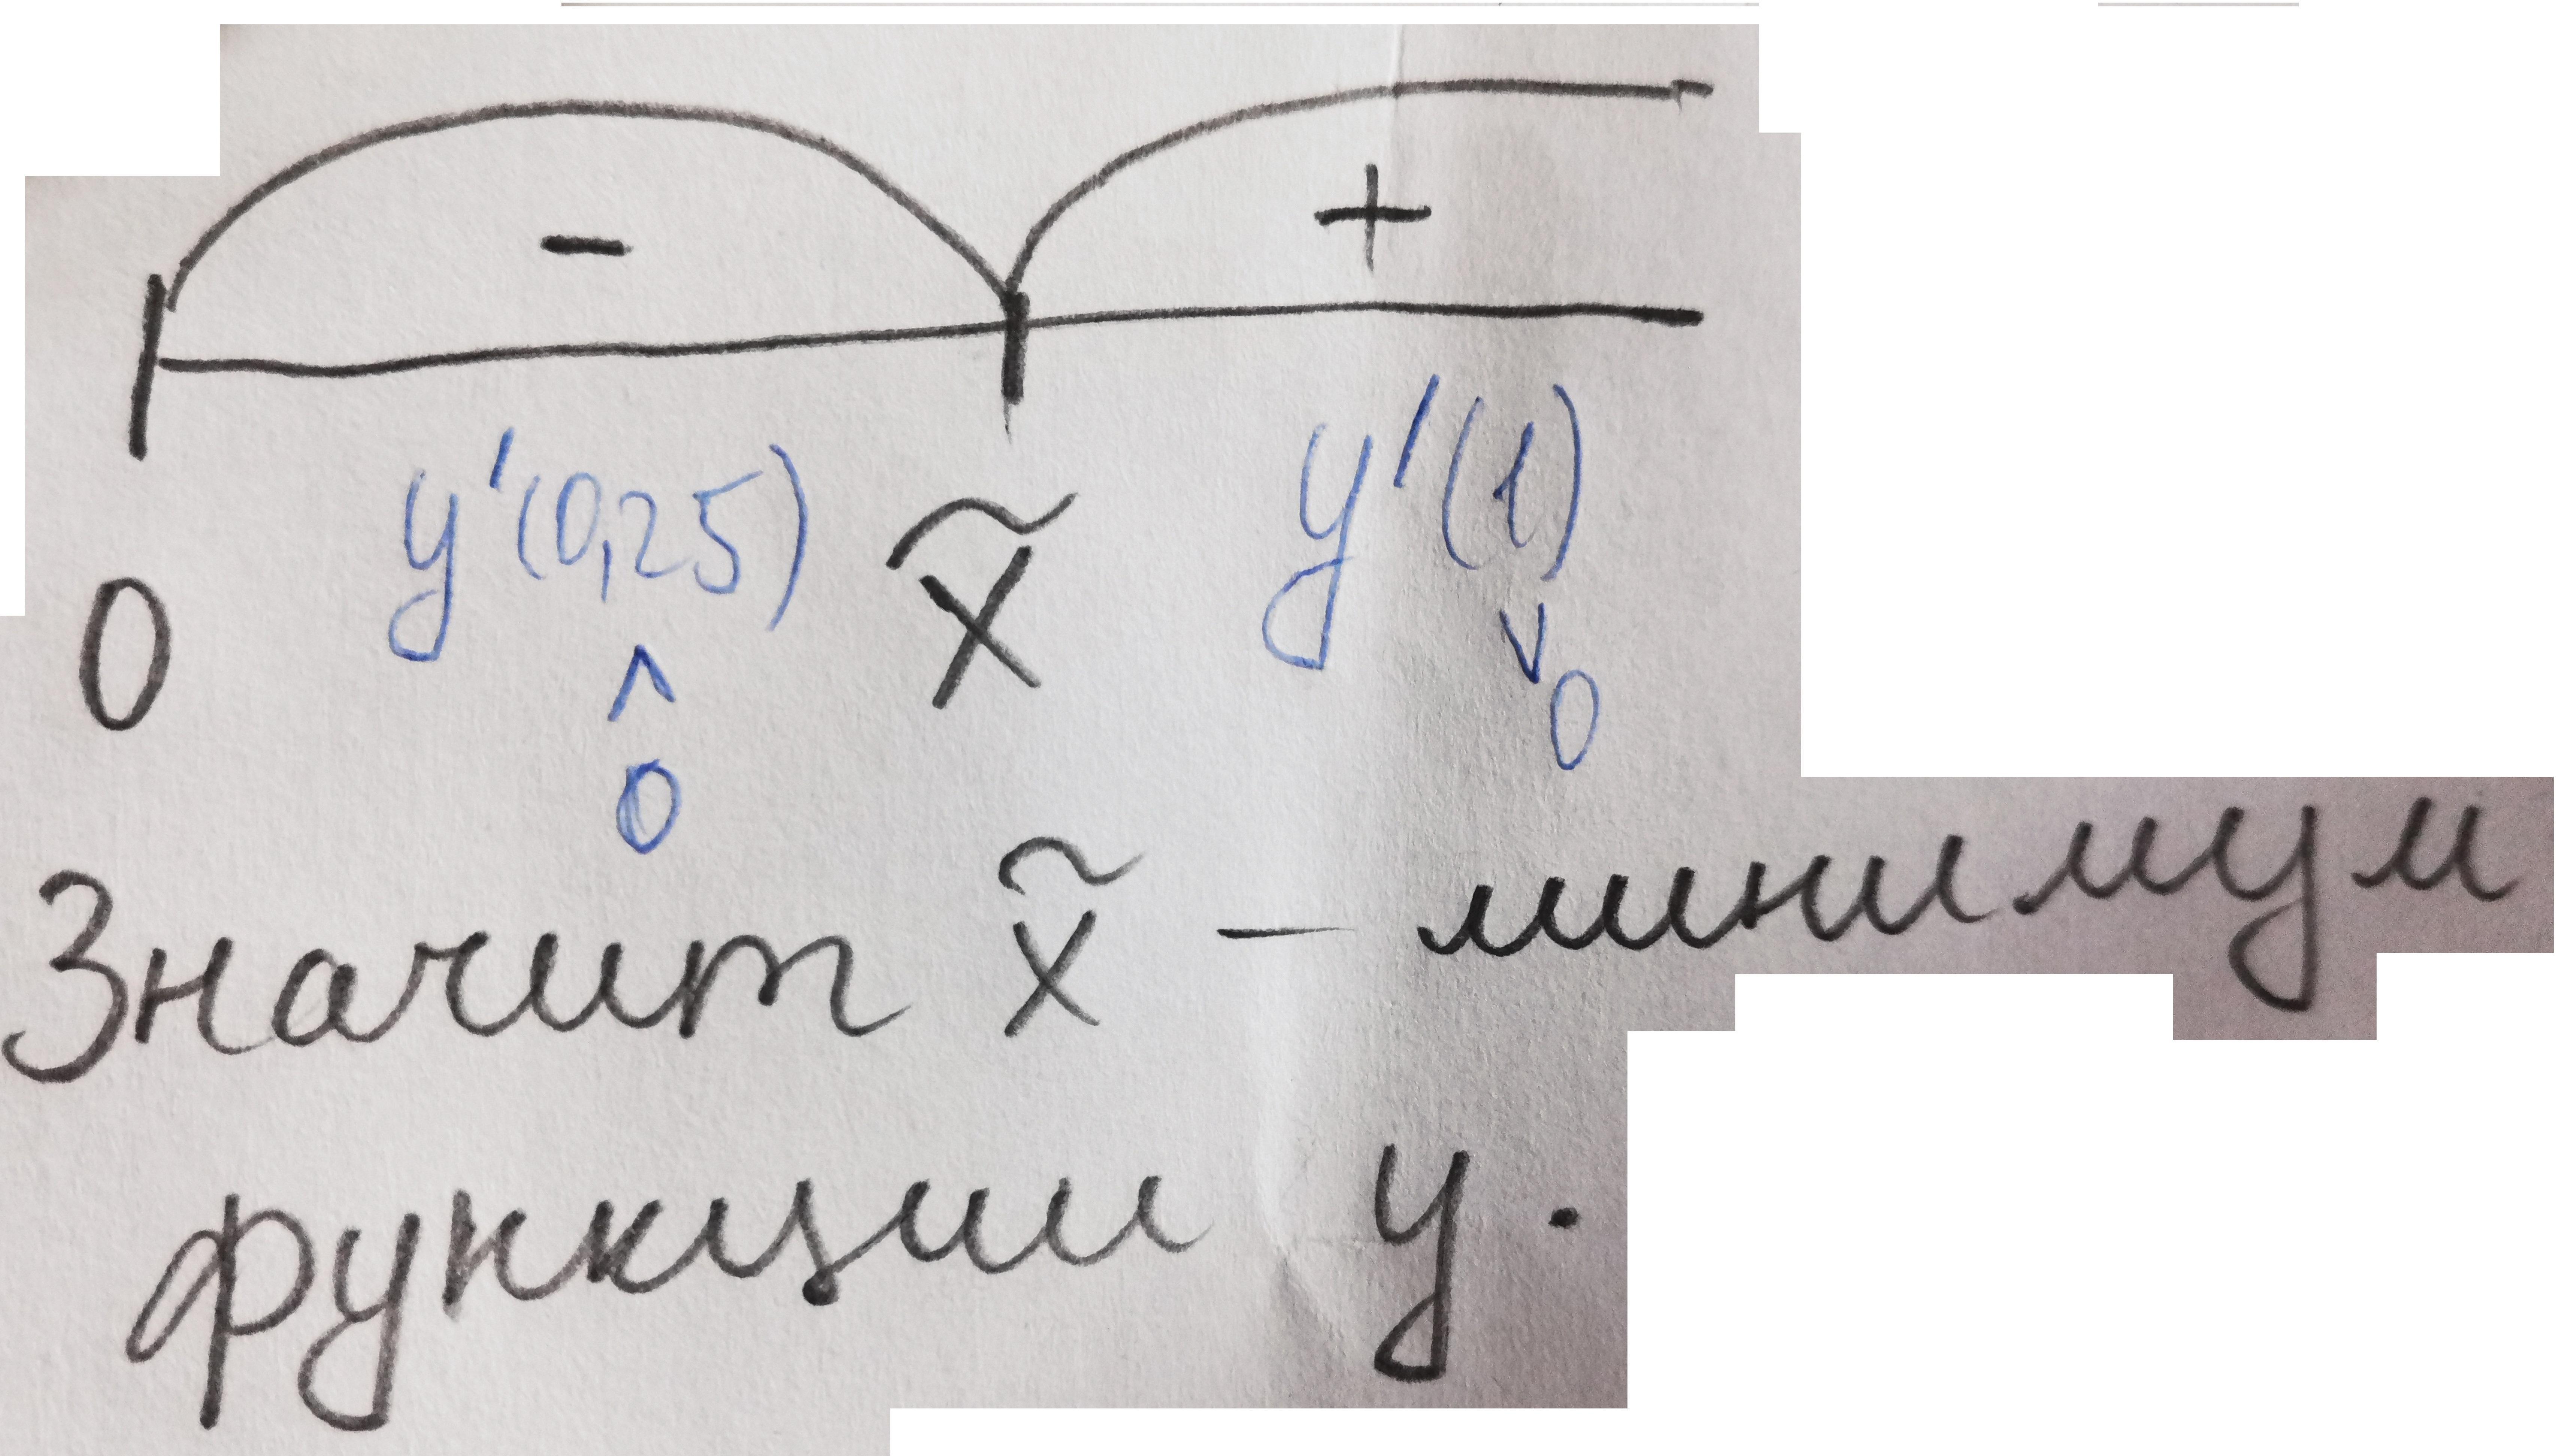 - +
0 y'(0,25) x̃ y'(1)
^ v
0 0
Значит x̃ – минимум
функции y.